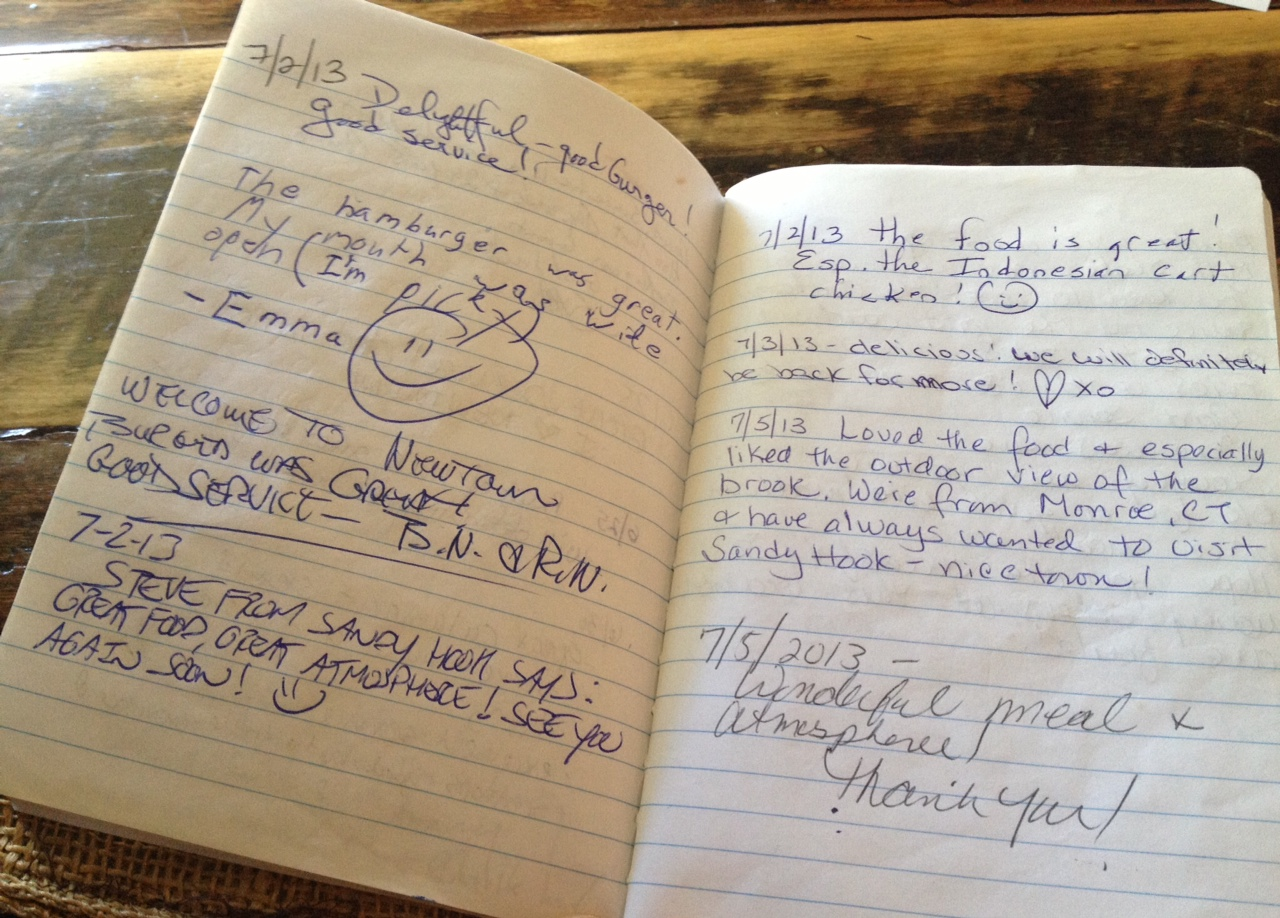 7/2/13 Delightful, - good burger!
good service!
The hamburger was great.
My mouth was wite
open (I'm picky)
- Emma
WELCOME TO NEWTOWN
BURGER WAS GREAT
GOOD SERVICE - B.N. & R.N.
7-2-13
STEVE FROM SANDY HOOK SAYS:
GREAT FOOD, GREAT ATMOSPHERE! SEE YOU
AGAIN SOON!
7/2/13 the food is great!
Esp. the Indonesian cart
chicken!
7/3/13 - delicious! we will definitely
be back for more! ♡ xo
7/5/13 Loved the food + especially
liked the outdoor view of the
brook. We're from Monroe, CT
+ have always wanted to visit
Sandy Hook - nice town!
7/5/2013 -
Wonderful meal &
atmosphere!
Thank you!